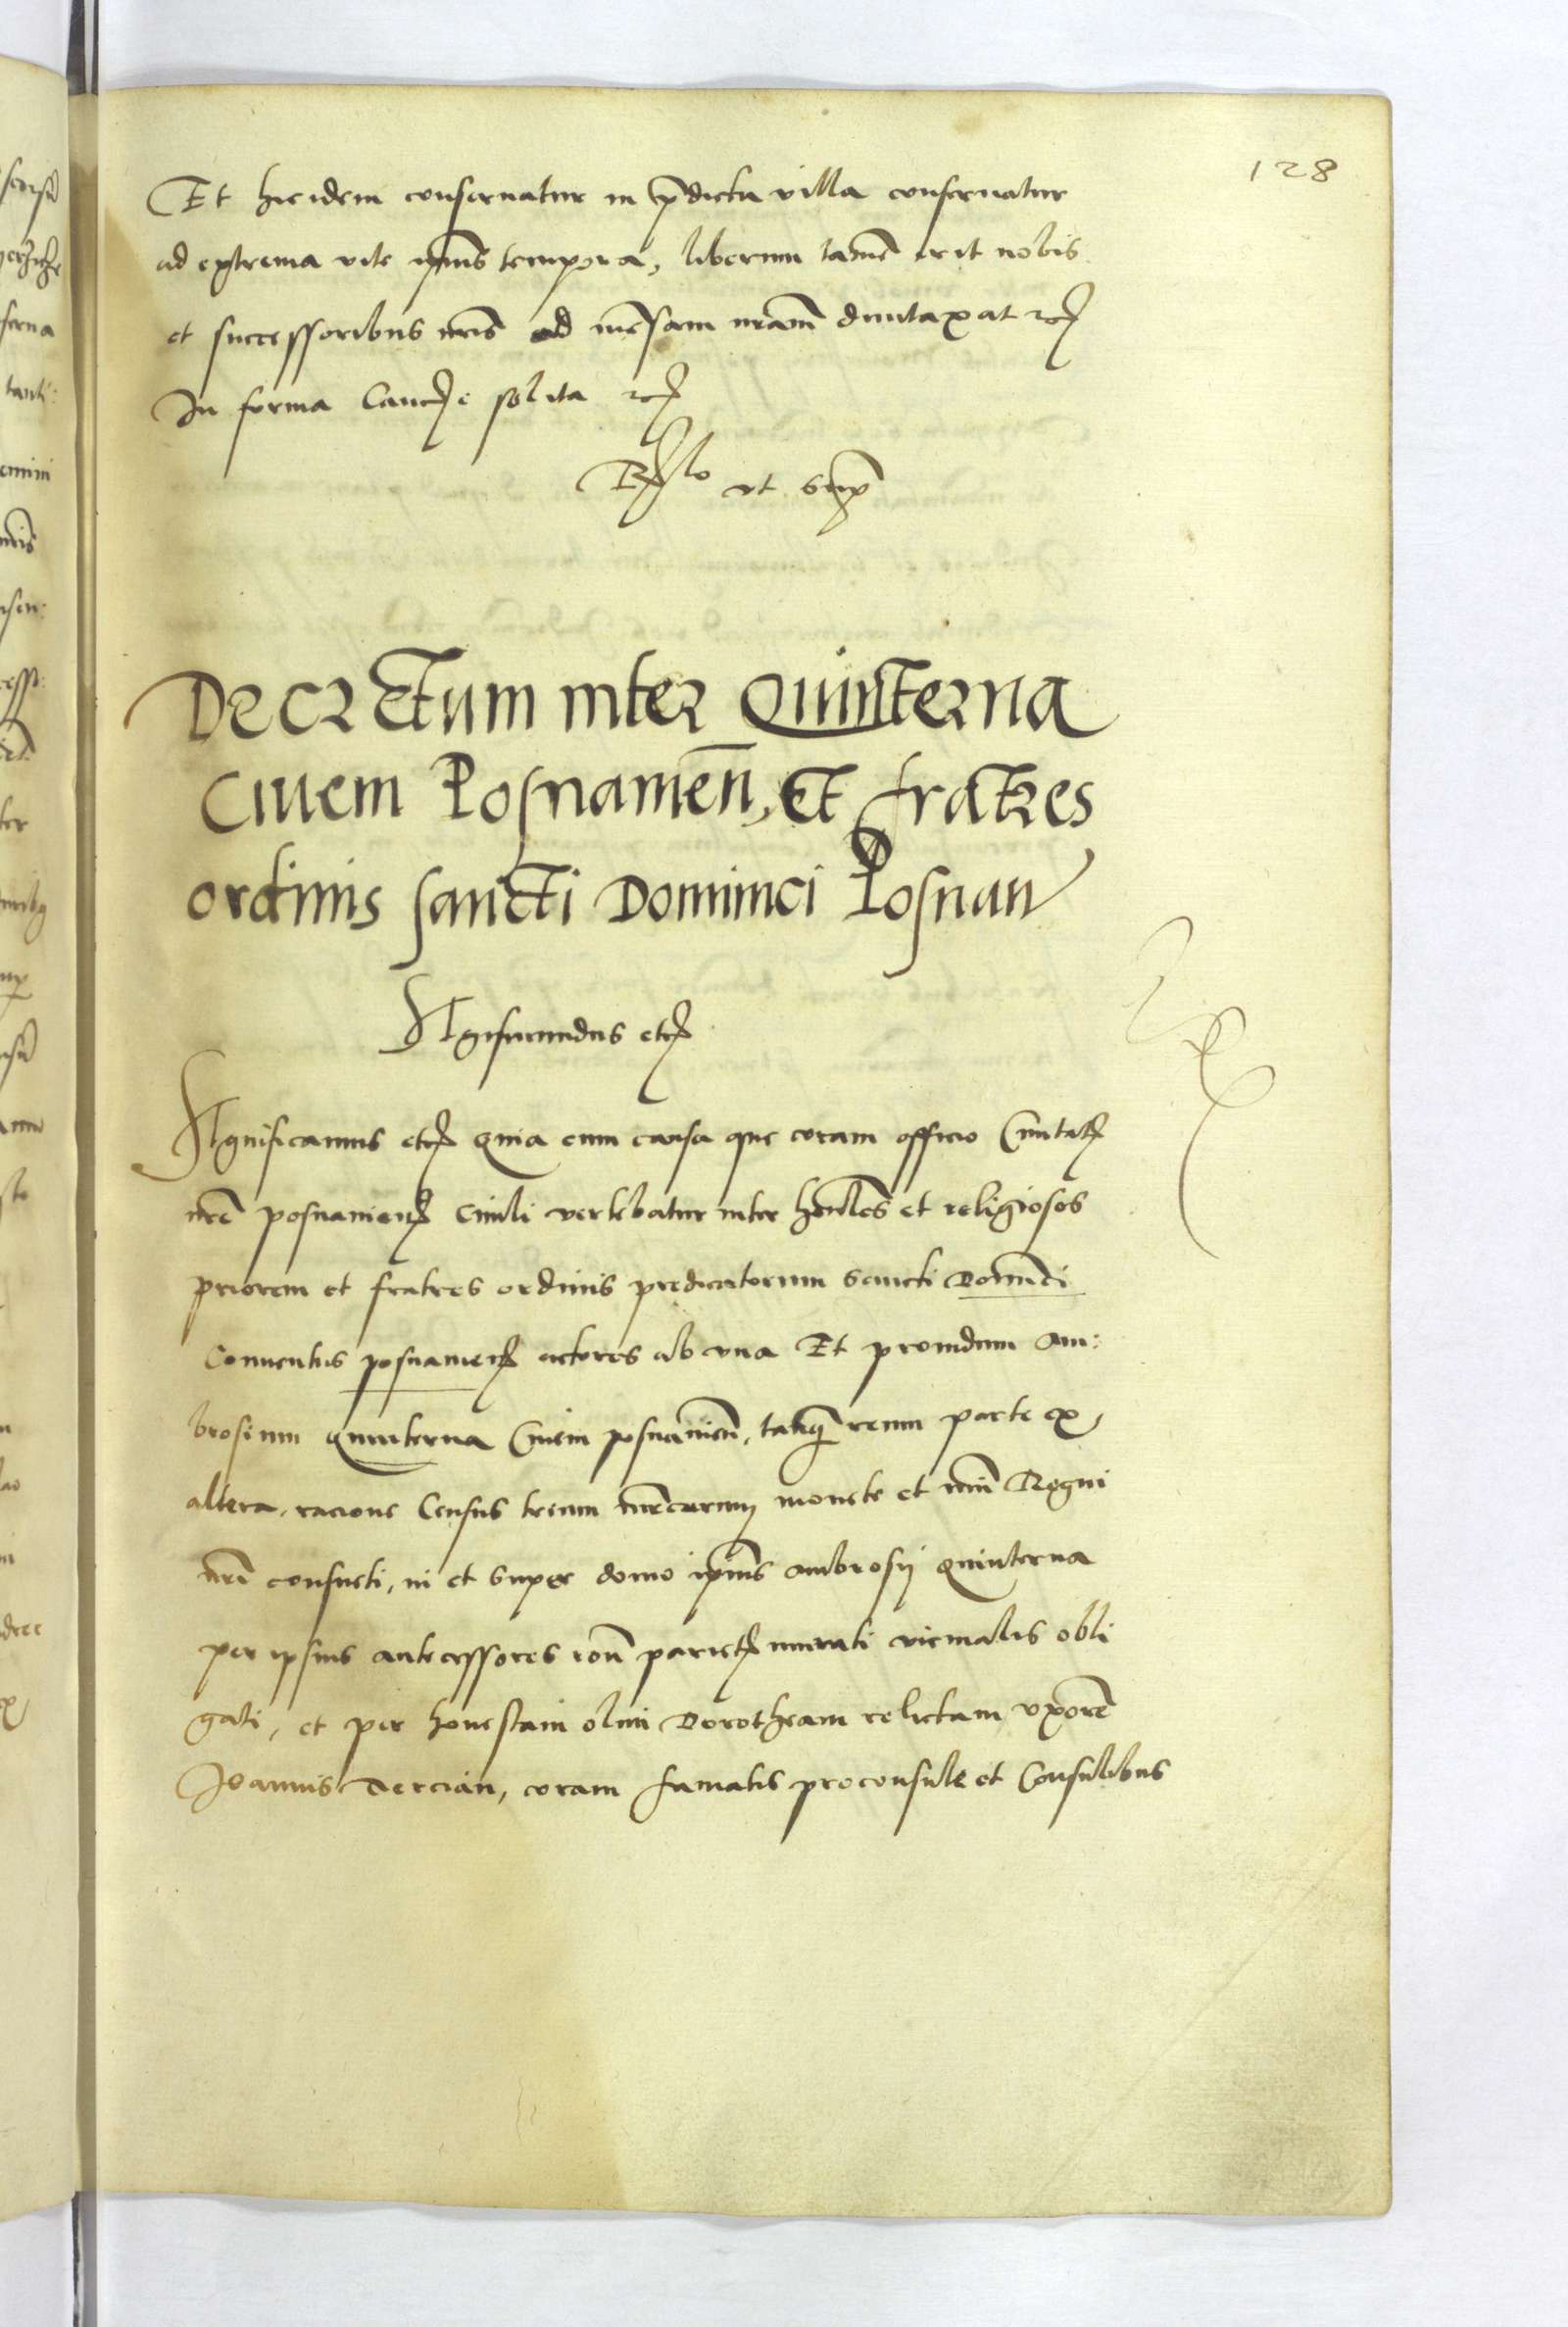 128
Et hic idem conservatur in p̄dicta villa conservatur
ad extrema vite ip̄ius tempora, liberum tamē erit nobis
et successoribus nr̄is ad mēsam nr̄am duntaxat etc
In forma Canc̄e solita etc
Rlo ut supͣ
Decretum inter Quinterna
Civem Posnaniēn, et fratres
ordinis sancti Dominici Posnan
Sigismundus etc
Significamus etc quia cum causa que coram officio Civitatꝭ
nr̄e posnanienꝭ Civili vertebatur inter honᷓles et religiosos
priorem et fratres ordinis predicatorum sancti Dominici
Conventus posnanienꝭ actores ab una Et providum Am:
brosium quinterna Civem posnaniēn, tanq̄ reum parte ex
altera, racione Census trium mrcarum monete et nūi Regni
nr̄i consueti, in et super domo ip̄ius ambrosij quinterna
per ipsius antecessores rōn parietꝭ murati vicinalis obli
gati, et per honestam olim Dorotheam relictam uxorē
Joannis Dercian, coram famatis proconsule et Consulibus